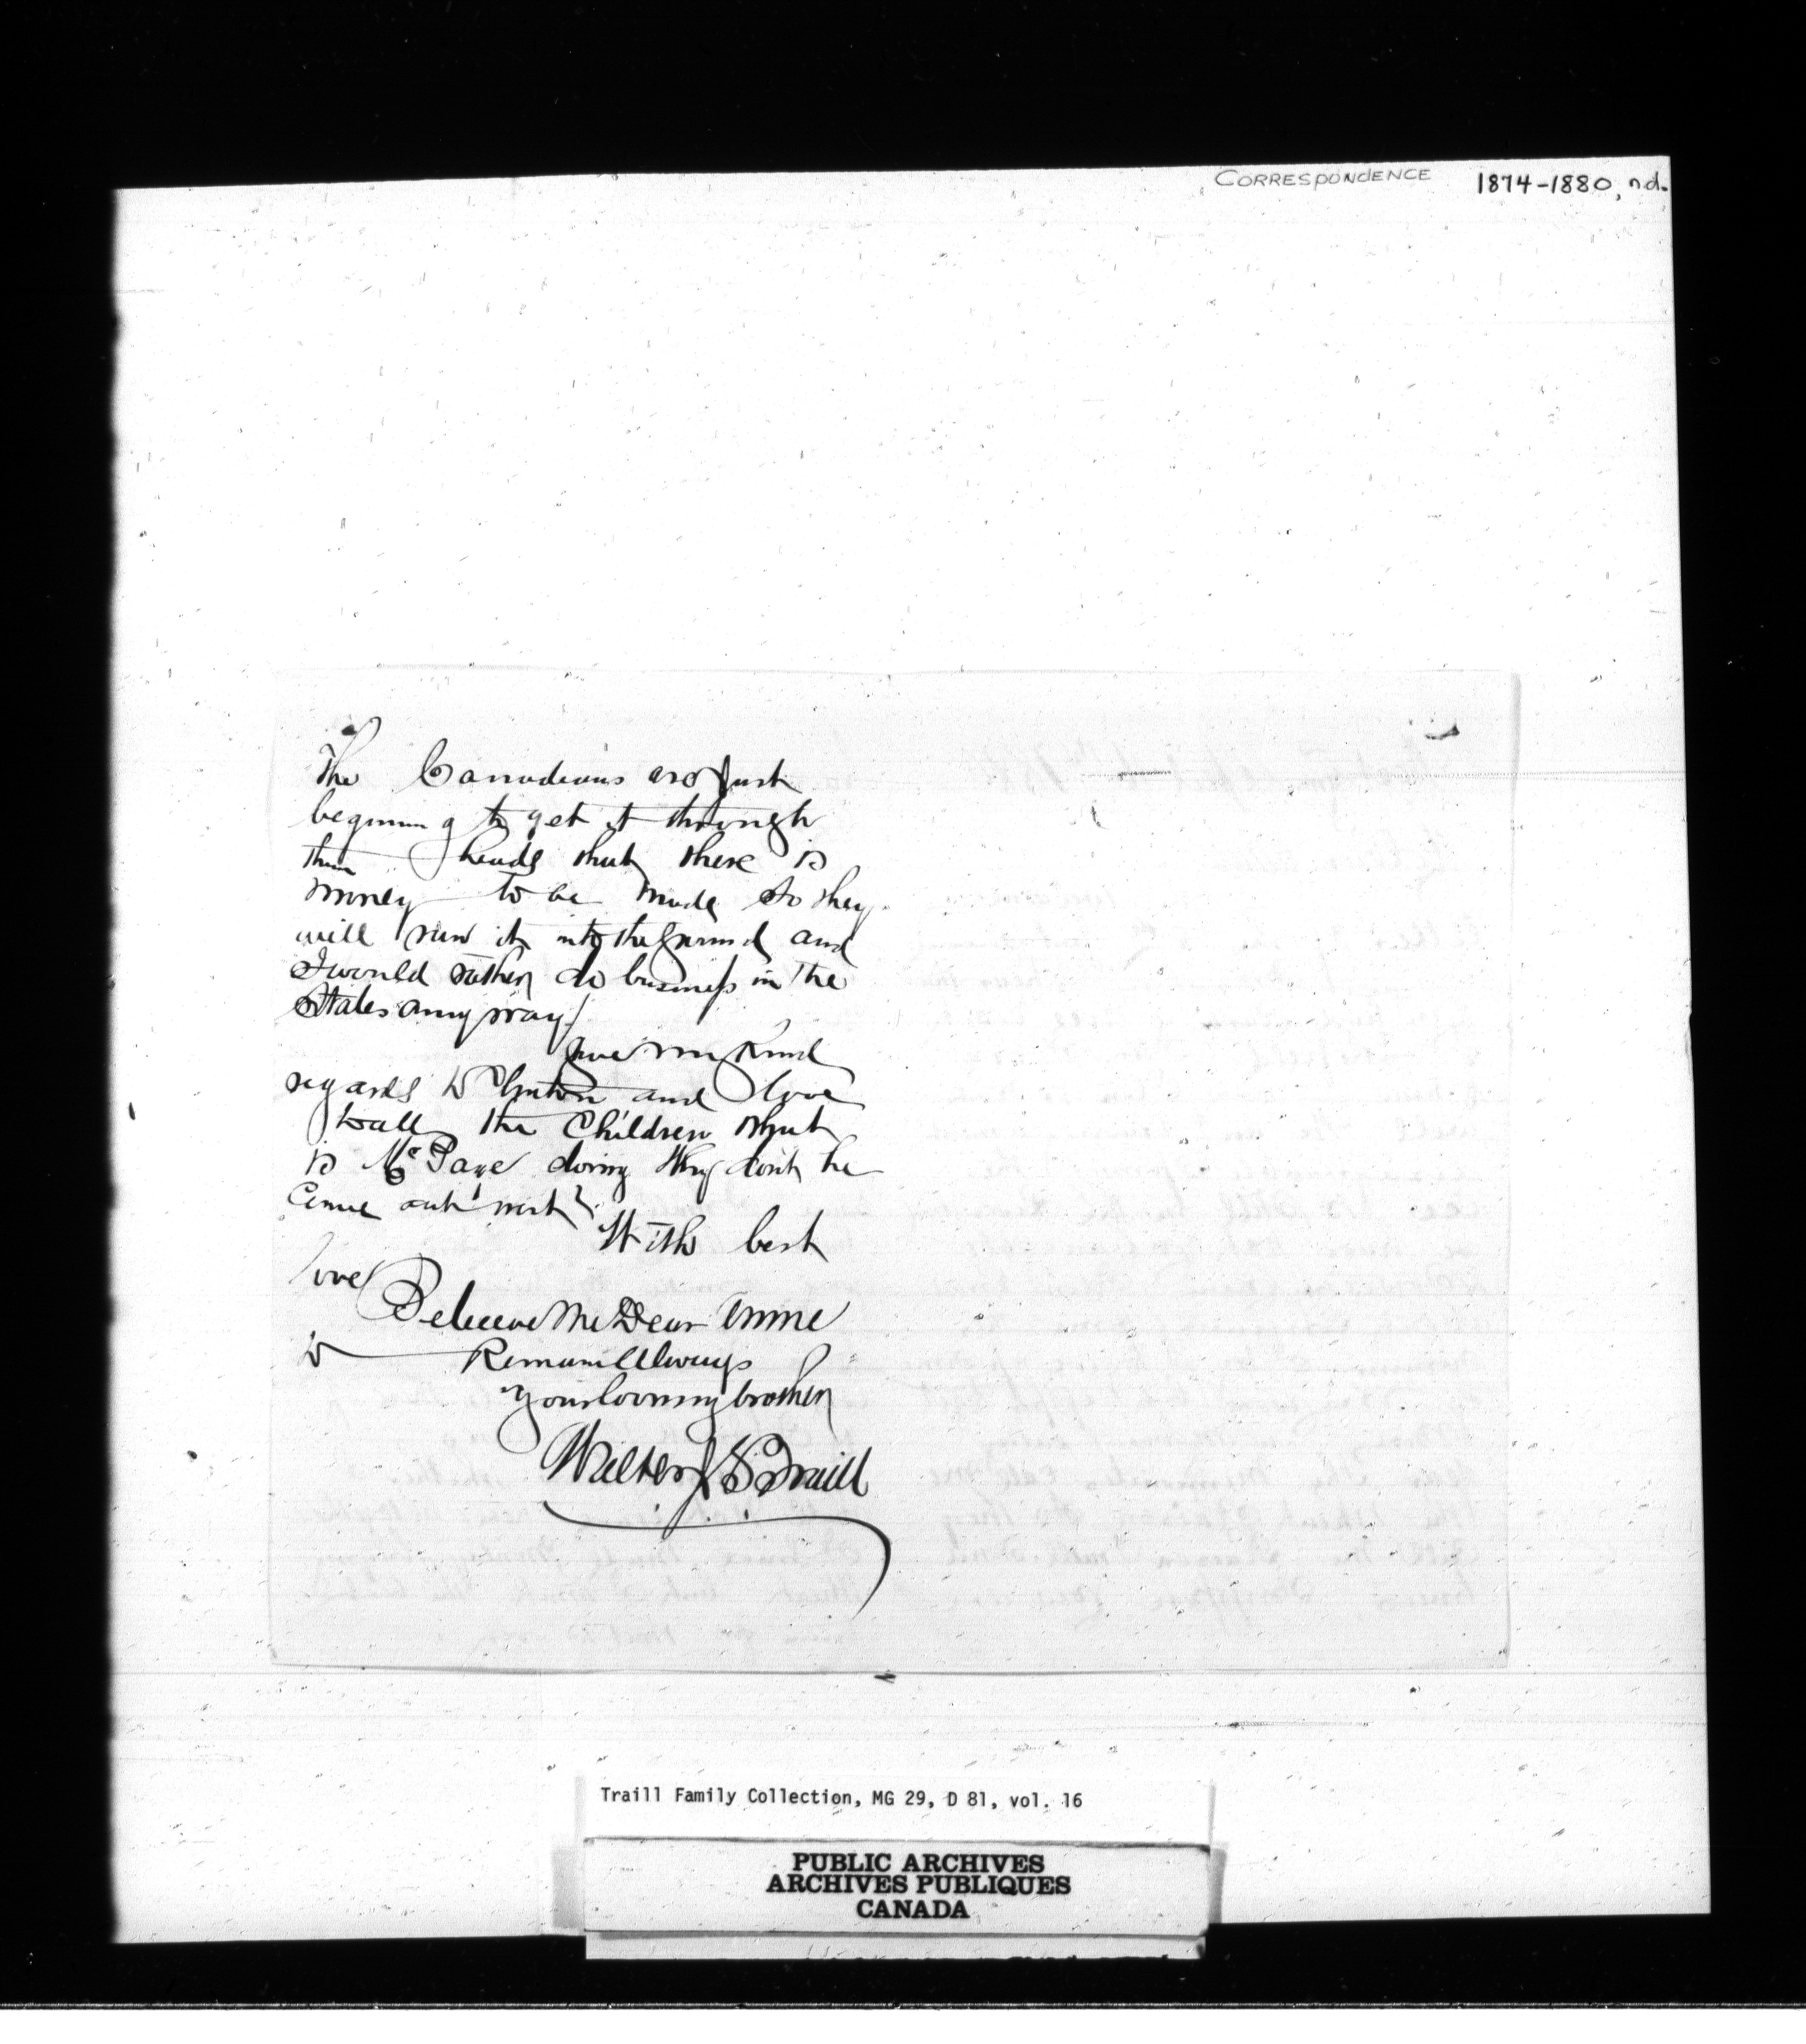 CORRESPONDENCE 1874-1880, n.d.
The Canadians are just
beginning to get it through
their heads that there is
money to be made so they
will run it into the ground and
I would rather do business in the
States anyway!
Give my Kind
regards to Clinton and love
to all the Children What
is Mr Page doing Why dont he
Come out west?
With best
love
Believe Me Dear Annie
to Remain Always
Your loving brother
Walter J S Traill
Traill Family Collection, MG 29, D 81, vol. 16
PUBLIC ARCHIVES
ARCHIVES PUBLIQUES
CANADA